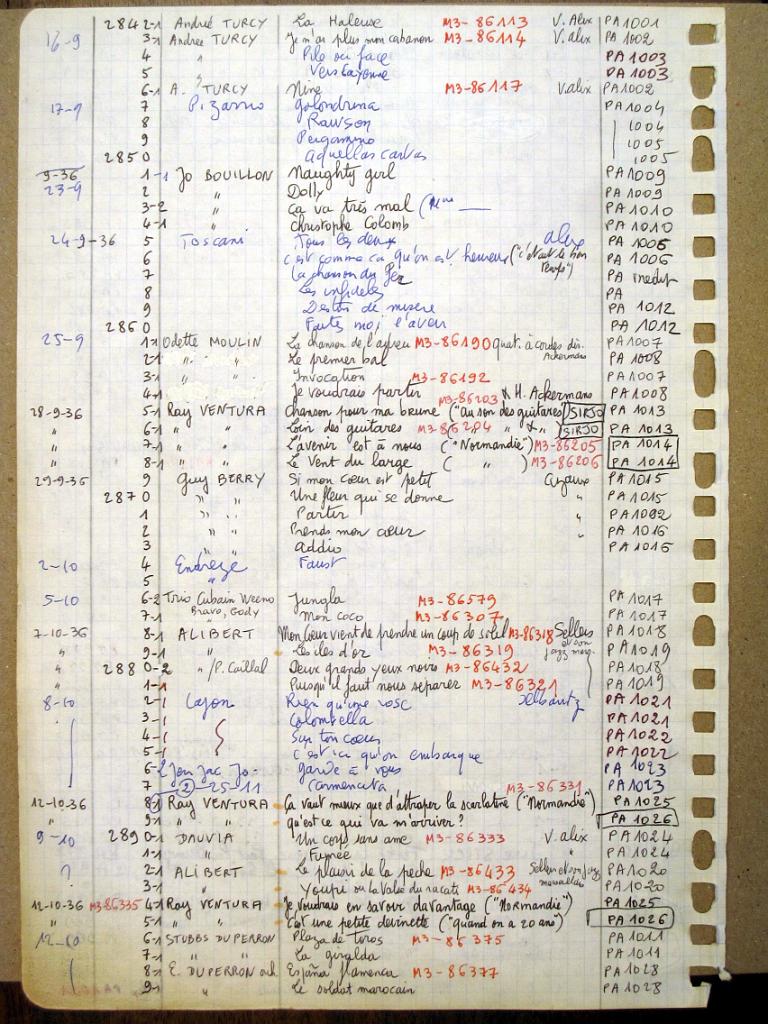 2842-1 André TURCY La Haleuse M3-86113 V. Alix PA1001
16-9 3-1 Andrée TURCY Je n'ai plus mon cabanon M3-86114 V. alix PA 1002
4 " Pile ou face PA1003
5 " Vers Bayonne PA1003
6-1 A. TURCY Nine M3-86117 V.alix PA1002
17-9 7 Pizarro Golondrina PA1004
8 Rawson 1004
9 Pergamino 1005
2850 aquellas cartas 1005
9-36 1-1 Jo BOUILLON Naughty girl PA1009
23-9 2 " Dolly PA1009
3-2 " Ça va très mal PA1010
4-1 " Christophe Colomb PA1010
24-9-36 5 Toscani Tous les deux alix PA 1006
6 c'est comme ça qu'on est heureux ("c'était le bon temps") PA 1006
7 La chanson du PA inedit
8 Les infideles PA
9 Destin de misere PA 1012
2860 Faites moi l'aveu PA 1012
25-9 1-1 Odette MOULIN La chanson de l'aveu M3-86190 quat. à cordes dir. Ackermans PA1007
2-1 " " Le premier bal PA 1008
3-1 " " Invocation M3-86192 PA1007
4-1 Je voudrais partir & H. Ackermans PA1008
28-9-36 5-1 Ray VENTURA Chanson pour ma brune M3-86203 ("Au son des guitares) SIRJO PA 1013
" 6-1 " " Loin des guitares M3-86204 ( " & " ) SIRJO PA 1013
" 7-1 " " L'avenir est à nous ("Normandie") M3-86205 PA 1014
" 8-1 " " Le Vent du large ( " ) M3-86206 PA 1014
29-9-36 9 Guy BERRY Si mon cœur est petit PA1015
2870 " " Une fleur qui se donne " PA1015
1 " " Partir " PA1092
2 " Prends mon cœur " PA1016
3 " " Addio PA1016
2-10 4 Endrèze Faust
5 "
5-10 6-2 Trio Cubain Jungla M3-86579 PA1017
7-1 Bravo, Gody Mon coco M3-86307 PA1017
7-10-36 8-1 ALIBERT Mon Cœur vient de prendre un coup de soleil M3-86318 Sellers et son jazz mars. PA1018
" 9-1 " Les iles d'or M3-86319 PA1019
" 2880-2 "/P. Caillol Deux grands yeux noirs M3-86432 PA1018
" 1-1 " Puisqu'il faut nous separer M3-86321 PA1019
8-10 2-1 Cazon Rien qu'une rose PA1021
3-1 Colombella PA1021
4-1 Sur ton cœur PA1022
5-1 c'est ici qu'on embarque PA1022
6-2 Jean Jac Jo- Garde à vous PA 1023
7 (2)-25-11 Carmencita M3-86331 PA1023
12-10-36 8-1 Ray VENTURA Ça vaut mieux que d'attraper la scarlatine ("Normandie") PA 1025
" 9-1 " " qu'est ce qui va m'arriver? PA 1026
9-10 2890-1 DAUVIA Un corps sans ame M3-86333 V. alix PA1024
1-1 " Fumée " PA1024
? 2-1 ALIBERT Le plaisir de la peche M3-86433 Sellers et son jazz marseillais PA1020
3-1 " Youpi ou la Valse du M3-86434 PA1020
12-10-36 M3 86335 4-1 Ray VENTURA Je voudrais en savoir davantage ("Normandie") PA1025
5-1 " " C'est une petite devinette ("Quand on a 20 ans") PA 1026
12-10 6-1 STUBBS DU PERRON Plaza de Toros M3-86375 PA1011
7-1 " " La giralda PA1011
8-1 E. DU PERRON orch España flamenca M3-86377 PA1028
9-1 " Le soldat marocain PA1028